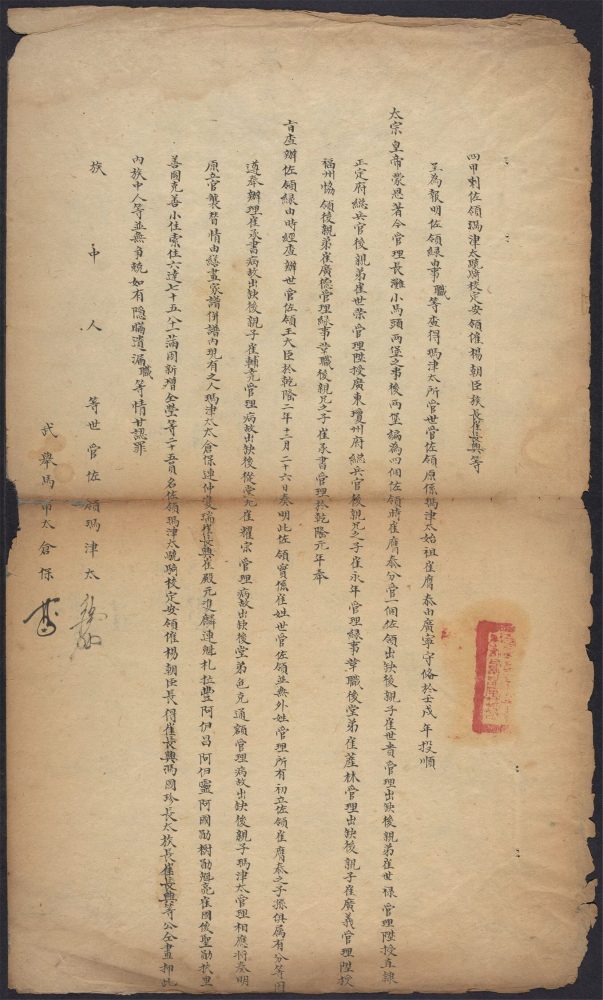 四甲喇佐領瑪津太驍騎校定安領催楊朝臣族長崔長興等
呈為報明佐領緣由事職等查得瑪津太所管世管佐領原係瑪津太始祖崔膺泰由廣寧守備於壬戌年投順
太宗皇帝蒙恩著令管理長灘小馬頭兩堡之事後兩堡編為四個佐領時崔膺泰分管一個佐領出缺後親子崔世貴管理出缺後親弟崔世祿管理陞授直隸
正定府總兵官後親弟崔世榮管理陞授廣東瓊州府總兵官後親兄之子崔永年管理緣事革職後堂弟崔蓝林管理出缺後親子崔廣義管理陞授
福州協領後親弟崔廣德管理緣事革職後親兄之子崔承書管理於乾隆元年奉
旨查辦佐領緣由時經查辦世管佐領王大臣於乾隆二年十二月二十六日奏明此佐領實係崔姓世管佐領並無外姓管理所有初立佐領崔膺泰之子孫俱屬有分等因
遵奉辦理崔承書病故出缺後親子崔輔堯管理病故出缺後從堂兄崔耀宗管理病故出缺後堂弟色克通額管理病故出缺後親子瑪津太管理相應將奏明
原立官襲替情由繕畫家譜併譜內現有之人瑪津太太倉保連仲雙瑞崔長興崔殿元進麟連魁札拉豐阿伊昌阿伊靈阿國勛樹勛魁亮崔國俊聖勛扶里
善國克善小住索住六達七十五八十一滿囤新增全學等二十五員名佐領瑪津太驍騎校定安領催楊朝臣長得崔長興馮國珍長太族長崔長興等公仝畫押此
內族中人等並無爭競如有隱瞞遺漏職等情甘認罪
族中人等世管佐領瑪津太
武舉馬甲太倉保